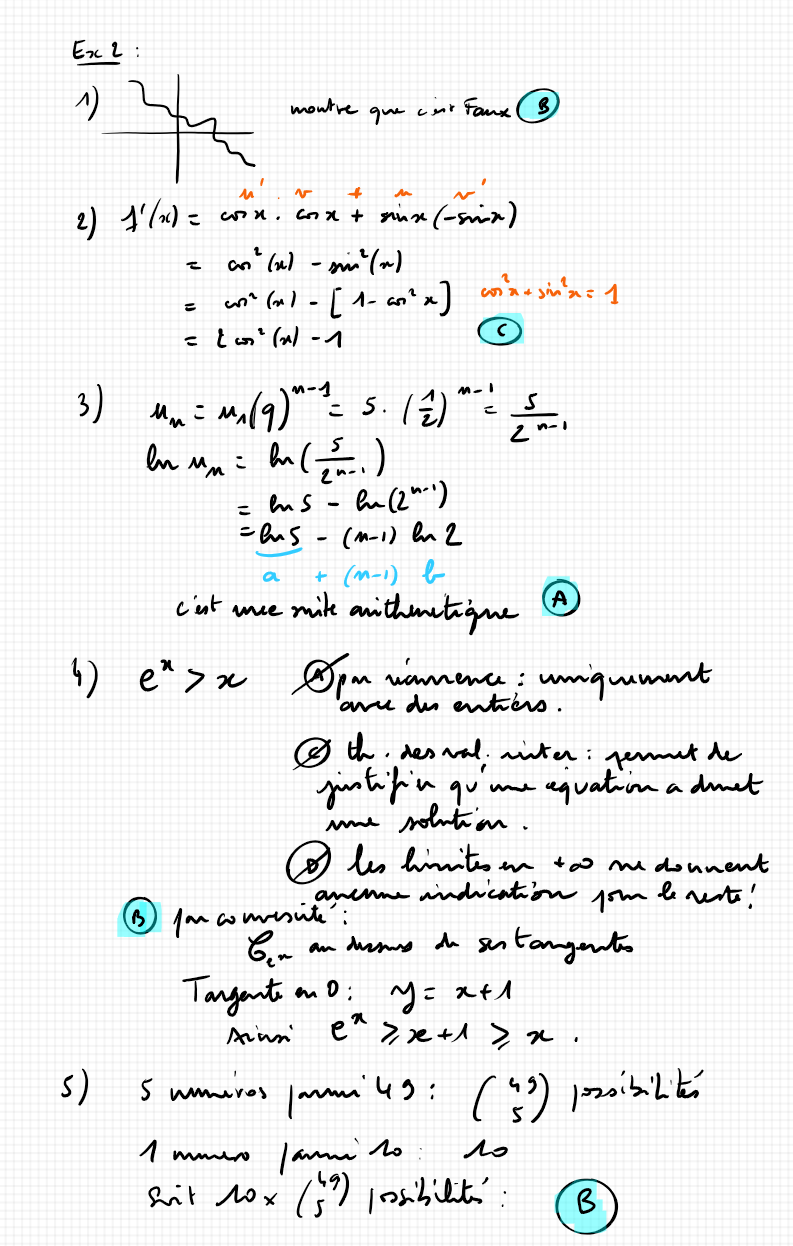 Ex 2 :
1) montre que c'est Faux B
u' . v + u v'
2) f'(x) = cos x . cos x + sin x (-sin x)
= cos²(x) - sin²(x)
= cos²(x) - [1 - cos² x] cos² x + sin² x = 1
= 2 cos²(x) - 1 C
3) uₙ = u₁(q)ⁿ⁻¹ = 5 . (1/2)ⁿ⁻¹ = 5/2ⁿ⁻¹
ln uₙ = ln(5/2ⁿ⁻¹)
= ln 5 - ln(2ⁿ⁻¹)
= ln 5 - (n-1) ln 2
a + (n-1) b
c'est une suite arithmétique A
4) eˣ > x A par récurrence : uniquement
avec des entiers.
C th. des val. inter : permet de
justifier qu'une équation admet
une solution.
D les limites en +∞ ne donnent
aucune indication pour le reste !
B par convexité :
C eˣ au dessus de ses tangentes
Tangente en 0 : y = x + 1
Ainsi eˣ ⩾ x + 1 ⩾ x .
5) 5 numéros parmi 49 : (49 5) possibilités
1 numero parmi 10 : 10
Soit 10 × (49 5) possibilités : B